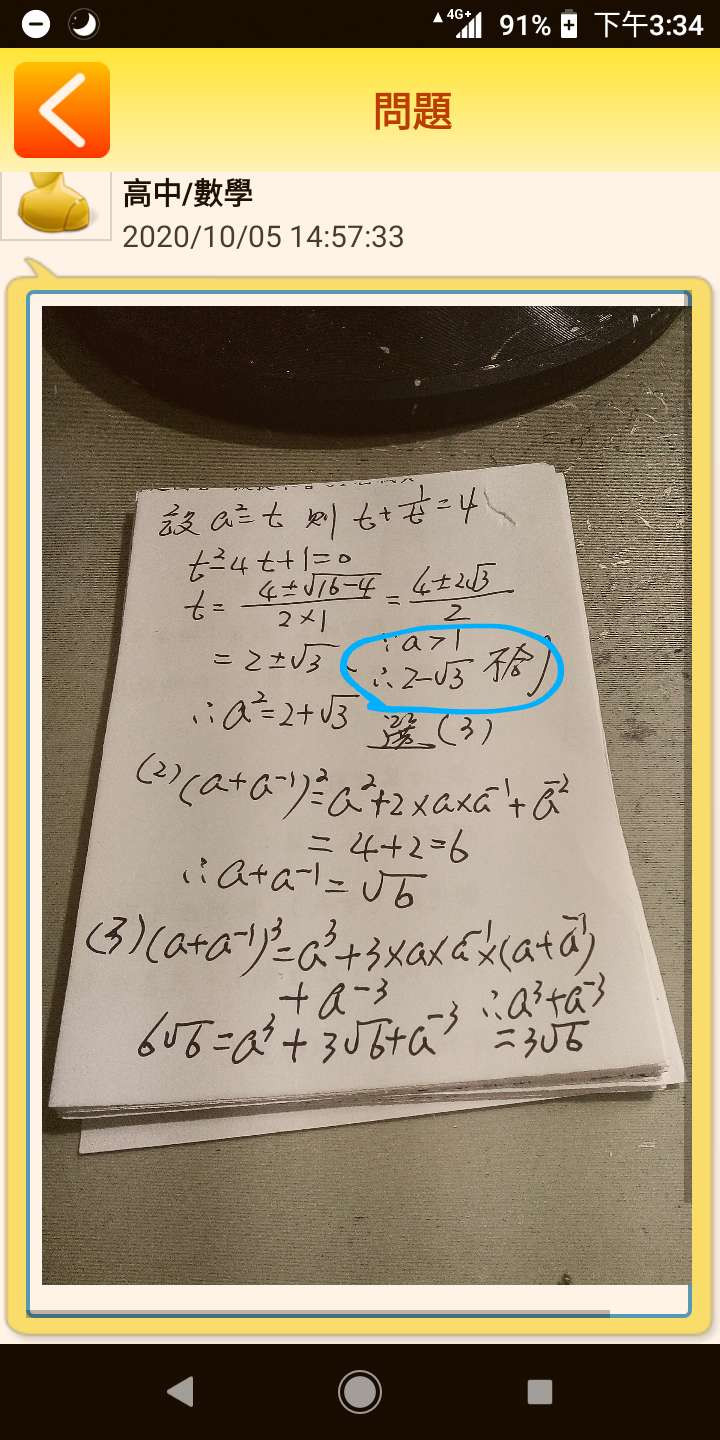 4G+ 91% 下午3:34
問題
高中/數學
2020/10/05 14:57:33
設 a²=t 則 t+1/t=4
t²-4t+1=0
t= (4±√16-4)/(2×1) = (4±2√3)/2
= 2±√3
∵a>1
∴2-√3 不合)
∴a²=2+√3 選(3)
(2)(a+a⁻¹)²=a²+2×a×a⁻¹+a⁻²
= 4+2=6
∴a+a⁻¹=√6
(3)(a+a⁻¹)³=a³+3×a×a⁻¹×(a+a⁻¹)
+a⁻³ ∴a³+a⁻³
6√6=a³+3√6+a⁻³ =3√6